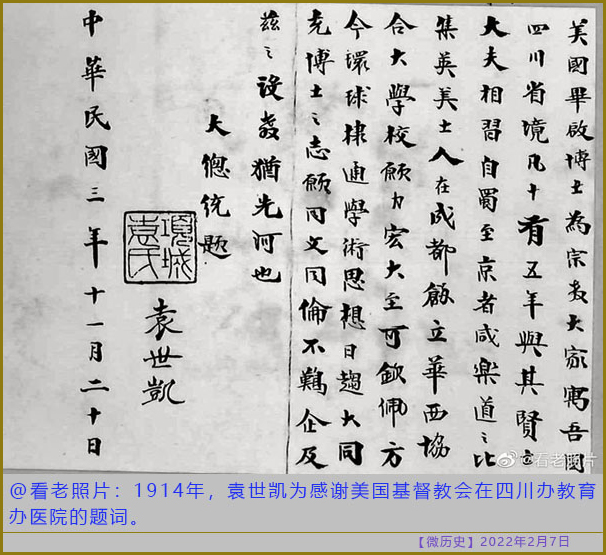 美國畢啟博士為宗教大家寓吾國
四川省境凡十有五年與其賢士
大夫相習自蜀至京者咸樂道之比
集英美士人在成都創立華西協
合大學校願力宏大至可欽佩方
今環球棣通學術思想日趨大同
充博士之志願同文同倫不難企及
茲之設教猶先河也
大總統題
項城袁氏
袁世凱
中華民國三年十一月二十日
@看老照片
@看老照片：1914年，袁世凯为感谢美国基督教会在四川办教育
办医院的题词。
【微历史】2022年2月7日